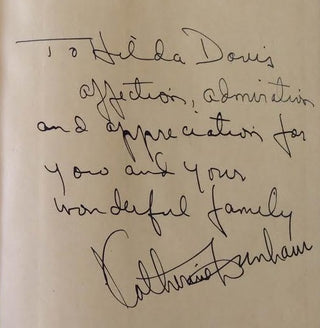 To Hilda Davis
affection, admiration
and appreciation for
you and your
wonderful family
Katherine Dunham